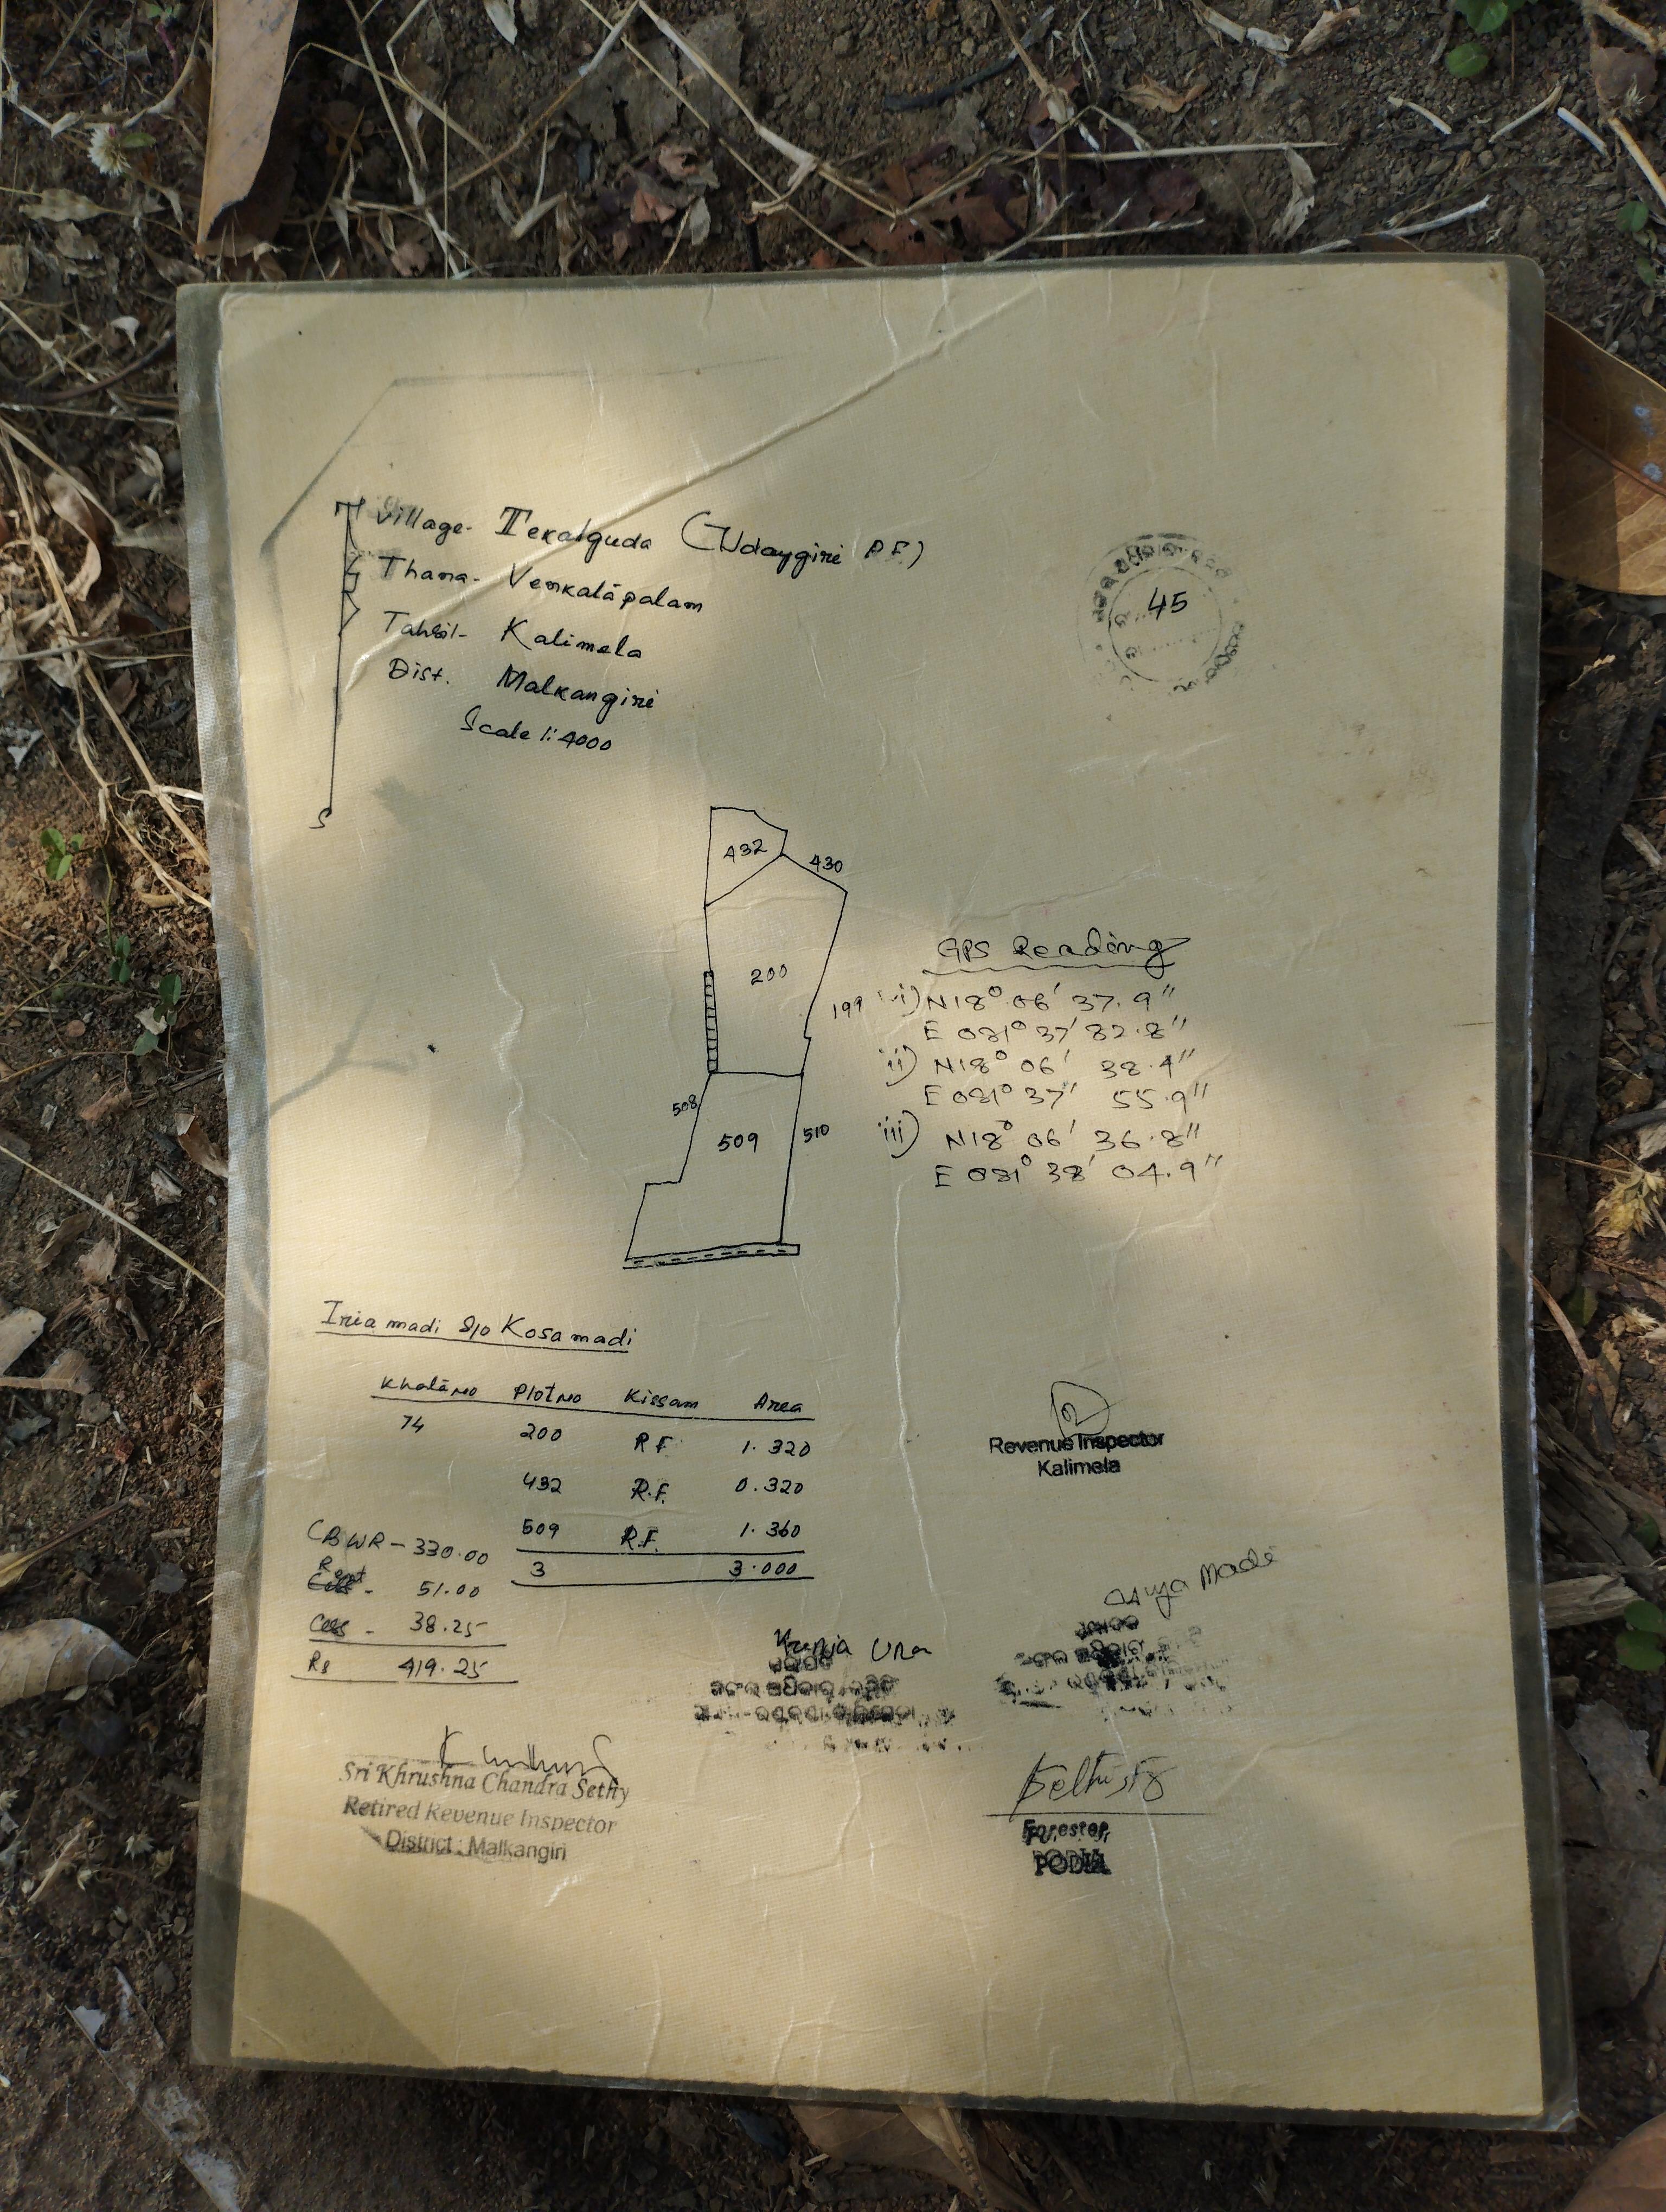 Village- Tekalguda (Udaygiri R.F.)
Thana- Venkatāpalam
Tahsil- Kalimela
Dist. Malkangiri
Scale 1:4000
S
45
432
430
200
199
508
509
510
GPS Reading
i) N18° 06' 37.9"
E 081° 37' 82.8"
ii) N18° 06' 38.4"
E 081° 37' 55.9"
iii) N18° 06' 36.8"
E 081° 38' 04.9"
Iria madi S/o Kosa madi
Khatā No Plot No Kissam Area
74 200 R.F 1.320
432 R.F. 0.320
509 R.F. 1.360
3 3.000
CBWR - 330.00
Rent - 51.00
Cess - 38.25
Rs 419.25
Revenue Inspector
Kalimela
Madi
Sri Khrushna Chandra Sethy
Retired Revenue Inspector
District : Malkangiri
Forester,
PODIA